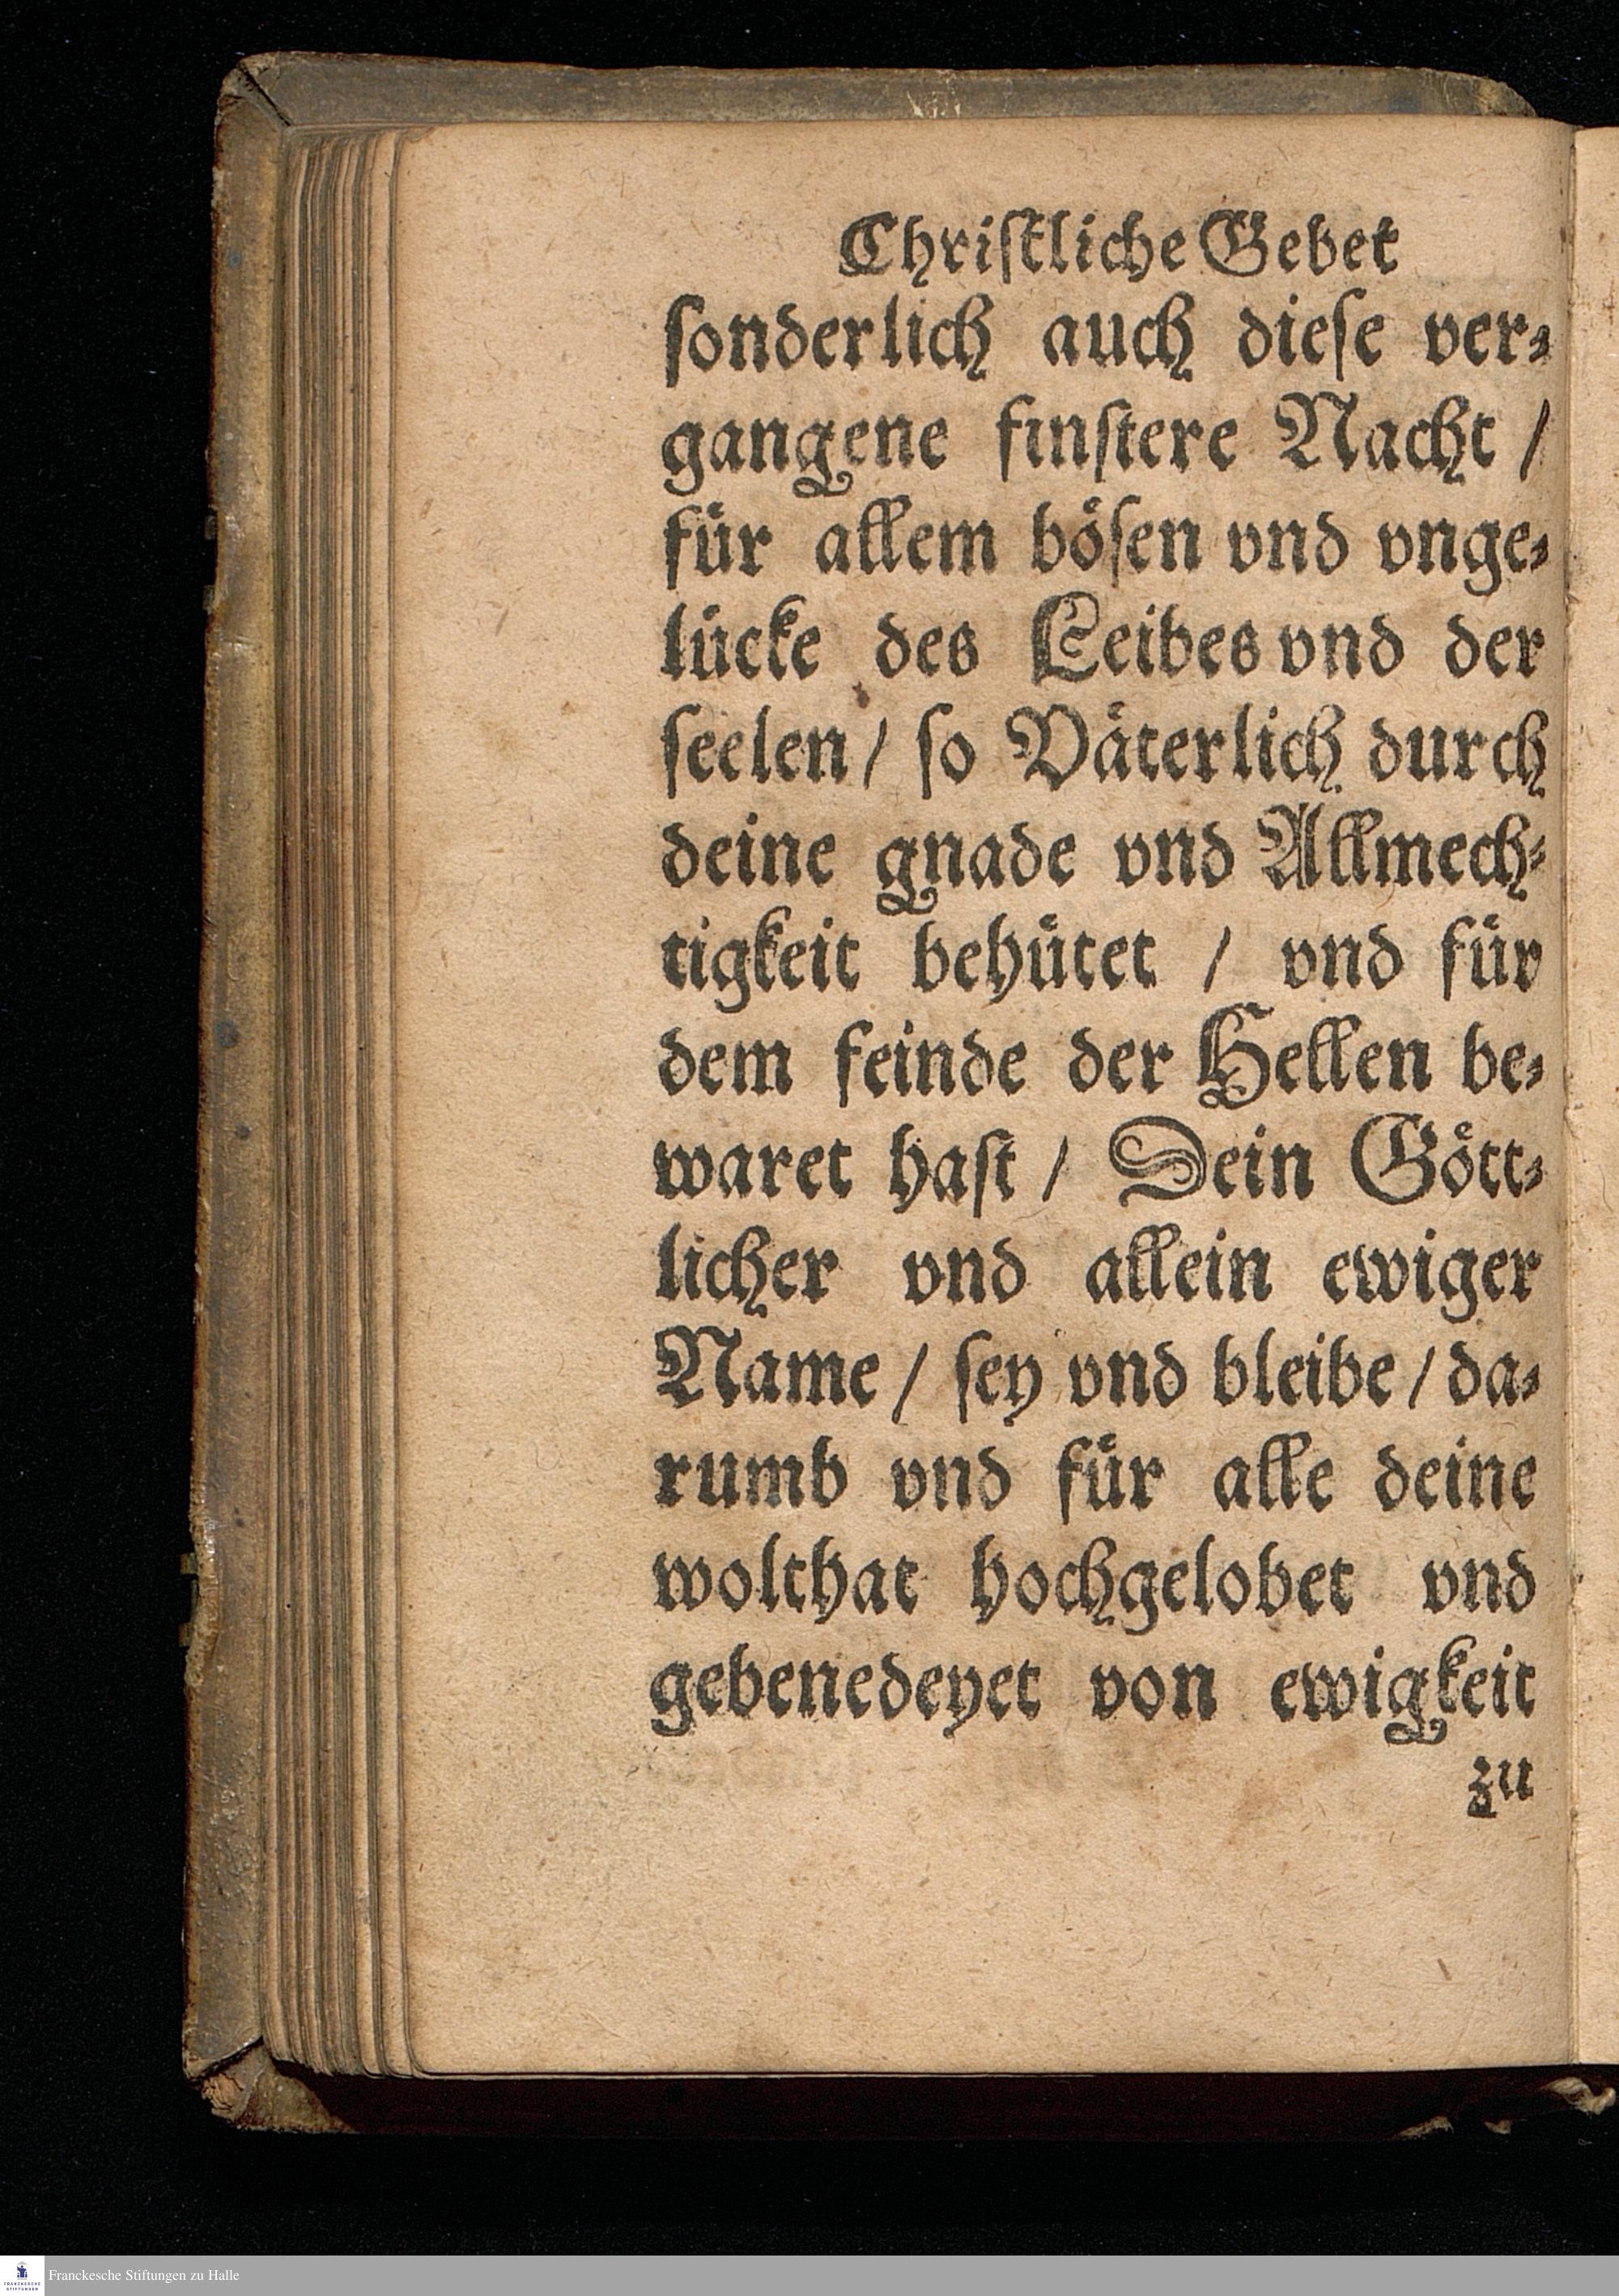 Chriſtliche Gebet
ſonderlich auch dieſe ver⸗
gangene finſtere Nacht /
für allem böſen vnd vnge⸗
lücke des Leibes vnd der
ſeelen / ſo Väterlich durch
deine gnade vnd Allmech⸗
tigkeit behütet / vnd für
dem feinde der Hellen be⸗
waret haſt / Dein Gött⸗
licher vnd allein ewiger
Name / ſey vnd bleibe / da⸗
rumb vnd für alle deine
wolthat hochgelobet vnd
gebenedeyet von ewigkeit
zu
FRANCKESCHE
STIFTUNGEN
Franckesche Stiftungen zu Halle